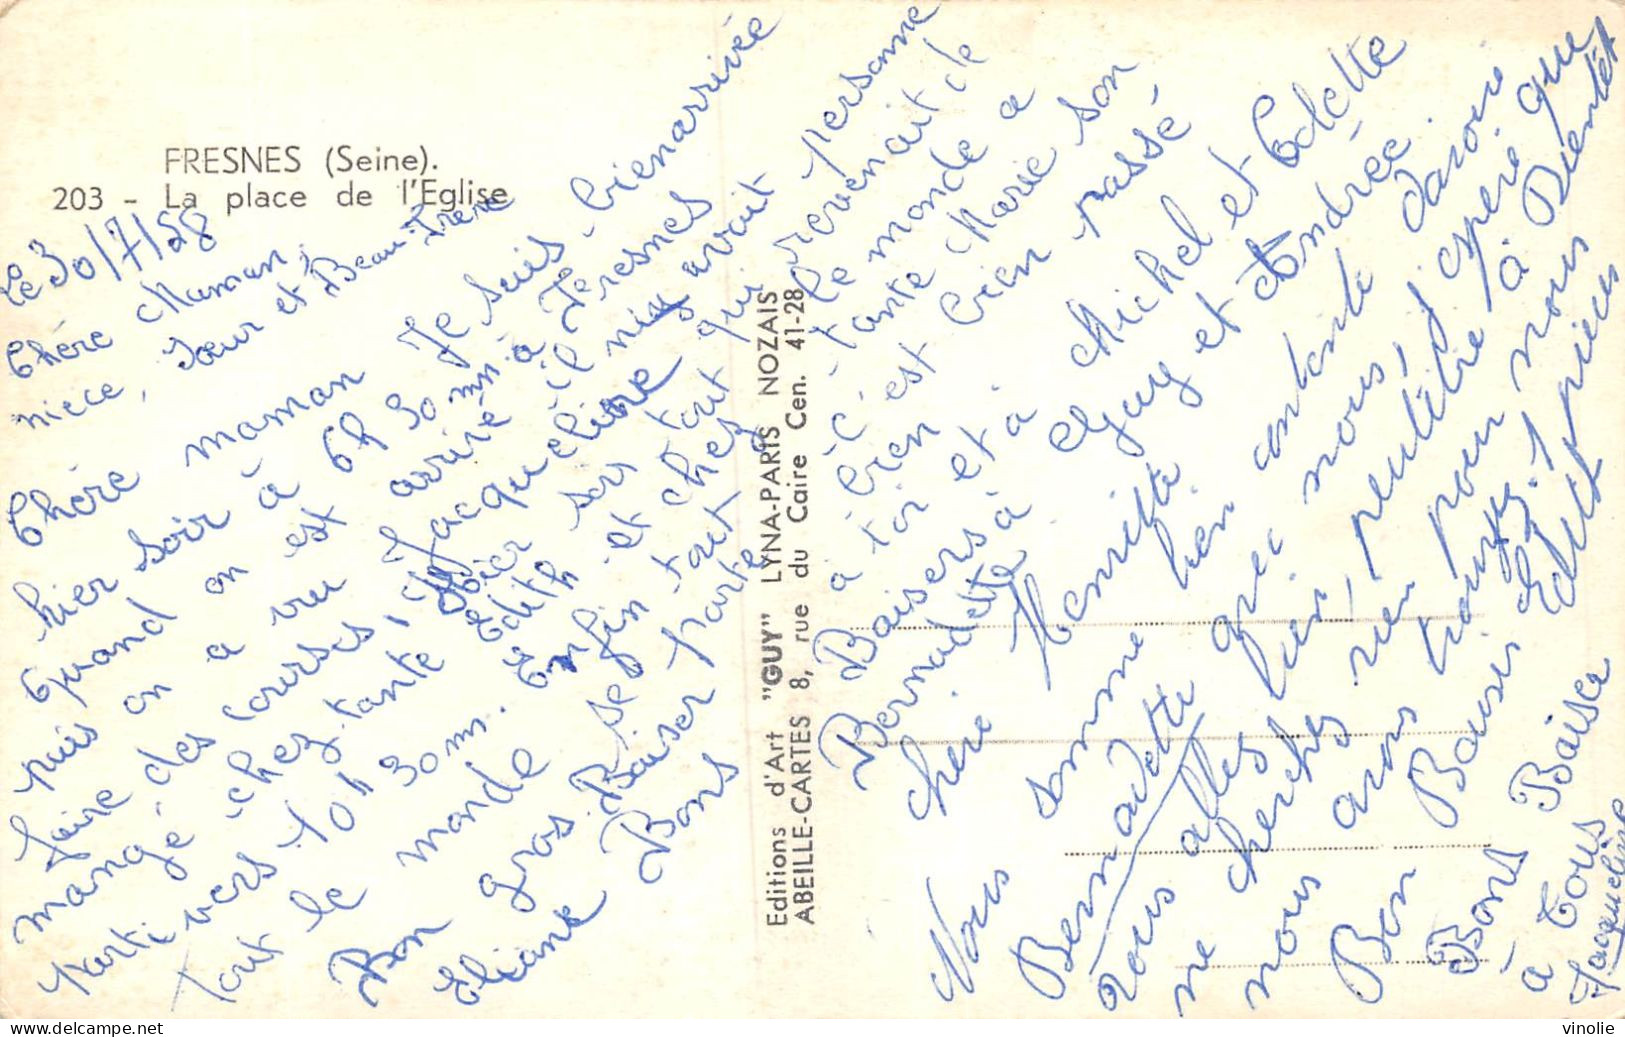 FRESNES (Seine).
203 - La place de l'Eglise
Le 30/7/58
Chère Maman,
niece, Sœur et Beau-Frère
Chère maman je suis bien arrivée
hier soir à 6h 30 mn à Fresnes
Quand on est arrivé il n'y avait personne
puis on a vu Jacqueline qui revenait de
faire des courses, hier soir tout le monde a
mangé chez tante Edith et chez tante Marie son
parti vers 10h 30 m. Enfin tout c'est bien passé
tout le monde se porte bien
Bon gros Baiser à toi et à Michel et Colette
Eliane Bons Baisers à Guy et Andrée.
Bernadette
chère Henriette
Nous somme bien contente d'avoir
Bernadette avec nous, j'espère que
vous alles bien, peutêtre à Bientôt
ne cherches rien pour nous
nous avons trouvez. 1 pièces
Bon Baisers Edith
Bons Baiser
à Tous
Jacqueline
Editions d'Art "GUY" LYNA-PARIS NOZAIS
ABEILLE-CARTES 8, rue du Caire Cen. 41-28
vinolie